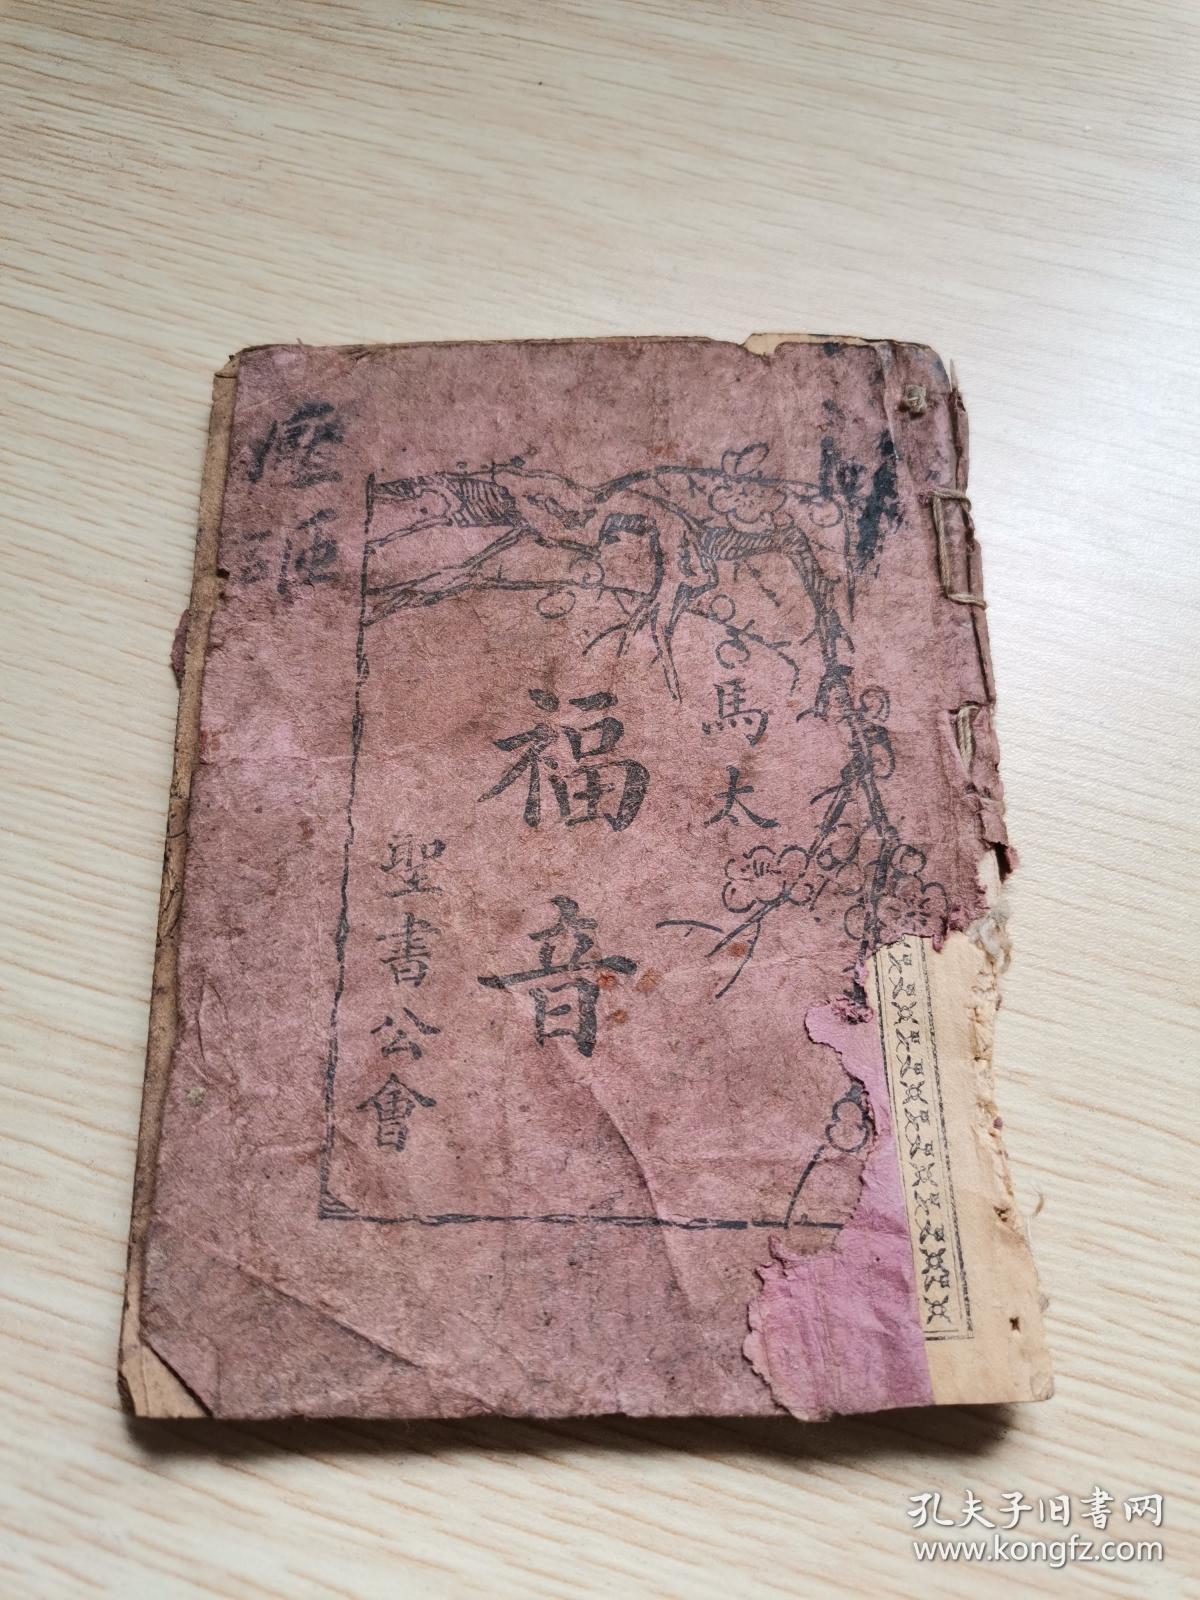 馬太
福音
聖書公會
孔夫子旧书网
www.kongfz.com